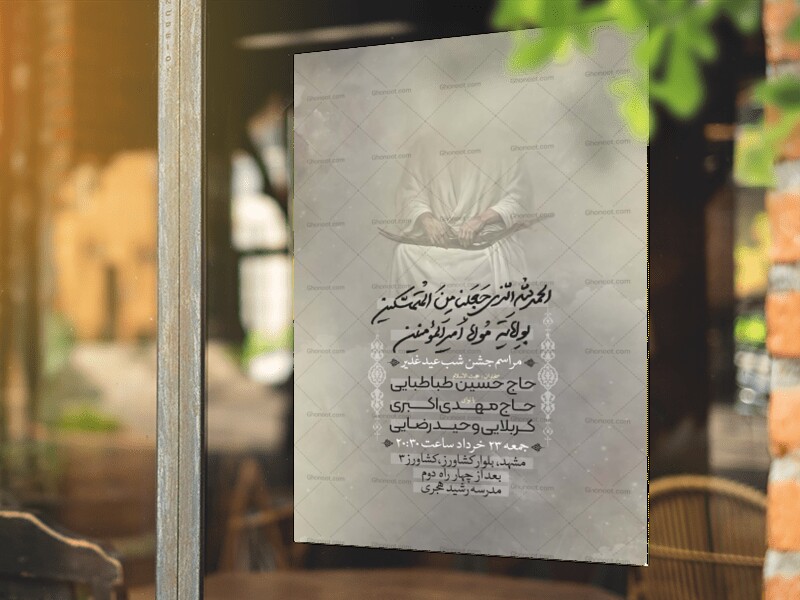 الحمدلله الذی جعلنا من المتمسکین
بولایة مولانا أمیرالمؤمنین
مراسم جشن شب عید غدیر
حاج حسین طباطبایی
حاج مهدی اکبری
کربلایی وحید رضایی
جمعه ۲۳ خرداد ساعت ۲۰:۳۰
مشهد، بلوار کشاورز، کشاورز ۳
بعد از چهار راه دوم
مدرسه رشید هجری
Ghonoot.com